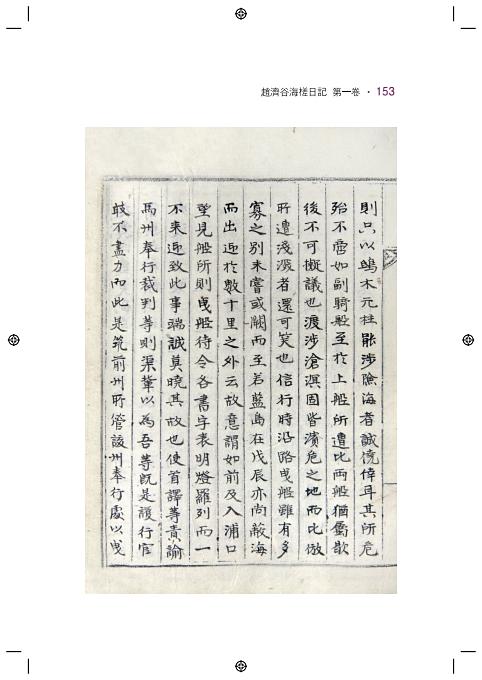 趙濟谷海槎日記 第一卷 · 153
則只以鴟木元柱能涉險海者誠僥倖耳其所危
殆不啻如副騎船至於上船所遭比兩船猶屬歇
後不可擬議也渡涉滄溟固皆濱危之地而比倣
所遭淺深者還可笑也信行時沿路曳船雖有多
寡之別未嘗或闕而至若藍島在戊辰亦尚蔽海
而出迎於數十里之外云故意謂如前及入浦口
望見船所則曳船待令各書字表明燈羅列而一
不來迎致此事端誠莫曉其故也使首譯等責諭
馬州奉行裁判等則渠輩以為吾等旣是護行官
豈不盡力而此是筑前州所管該州奉行處以曳